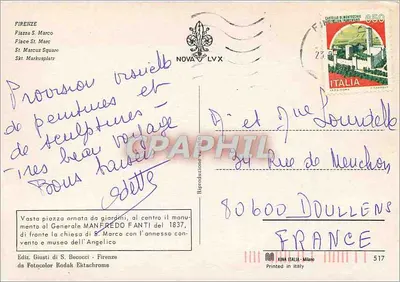 FIRENZE
Piazza S. Marco
Place St. Marc
St. Marcus Square
Skt. Markusplatz
NOVA LUX
FI
23
350
ITALIA
Provision visuelle
de peintures et
de sculptures -
Très beau voyage
Bons baisers
Odette
Mr et Mme Lourdelle
34 Rue de Menchon
80600 DOULLENS
FRANCE
CPAPHIL.COM
Riproduzione
Vasta piazza ornata da giardini, al centro il monu-
mento al Generale MANFREDO FANTI del 1837,
di fronte la chiesa di S. Marco con l'annesso con-
vento e museo dell'Angelico
Ediz. Giusti di S. Becocci - Firenze
da Fotocolor Kodak Ektachrome
ROTALITALIA - Milano
Printed in Italy
517